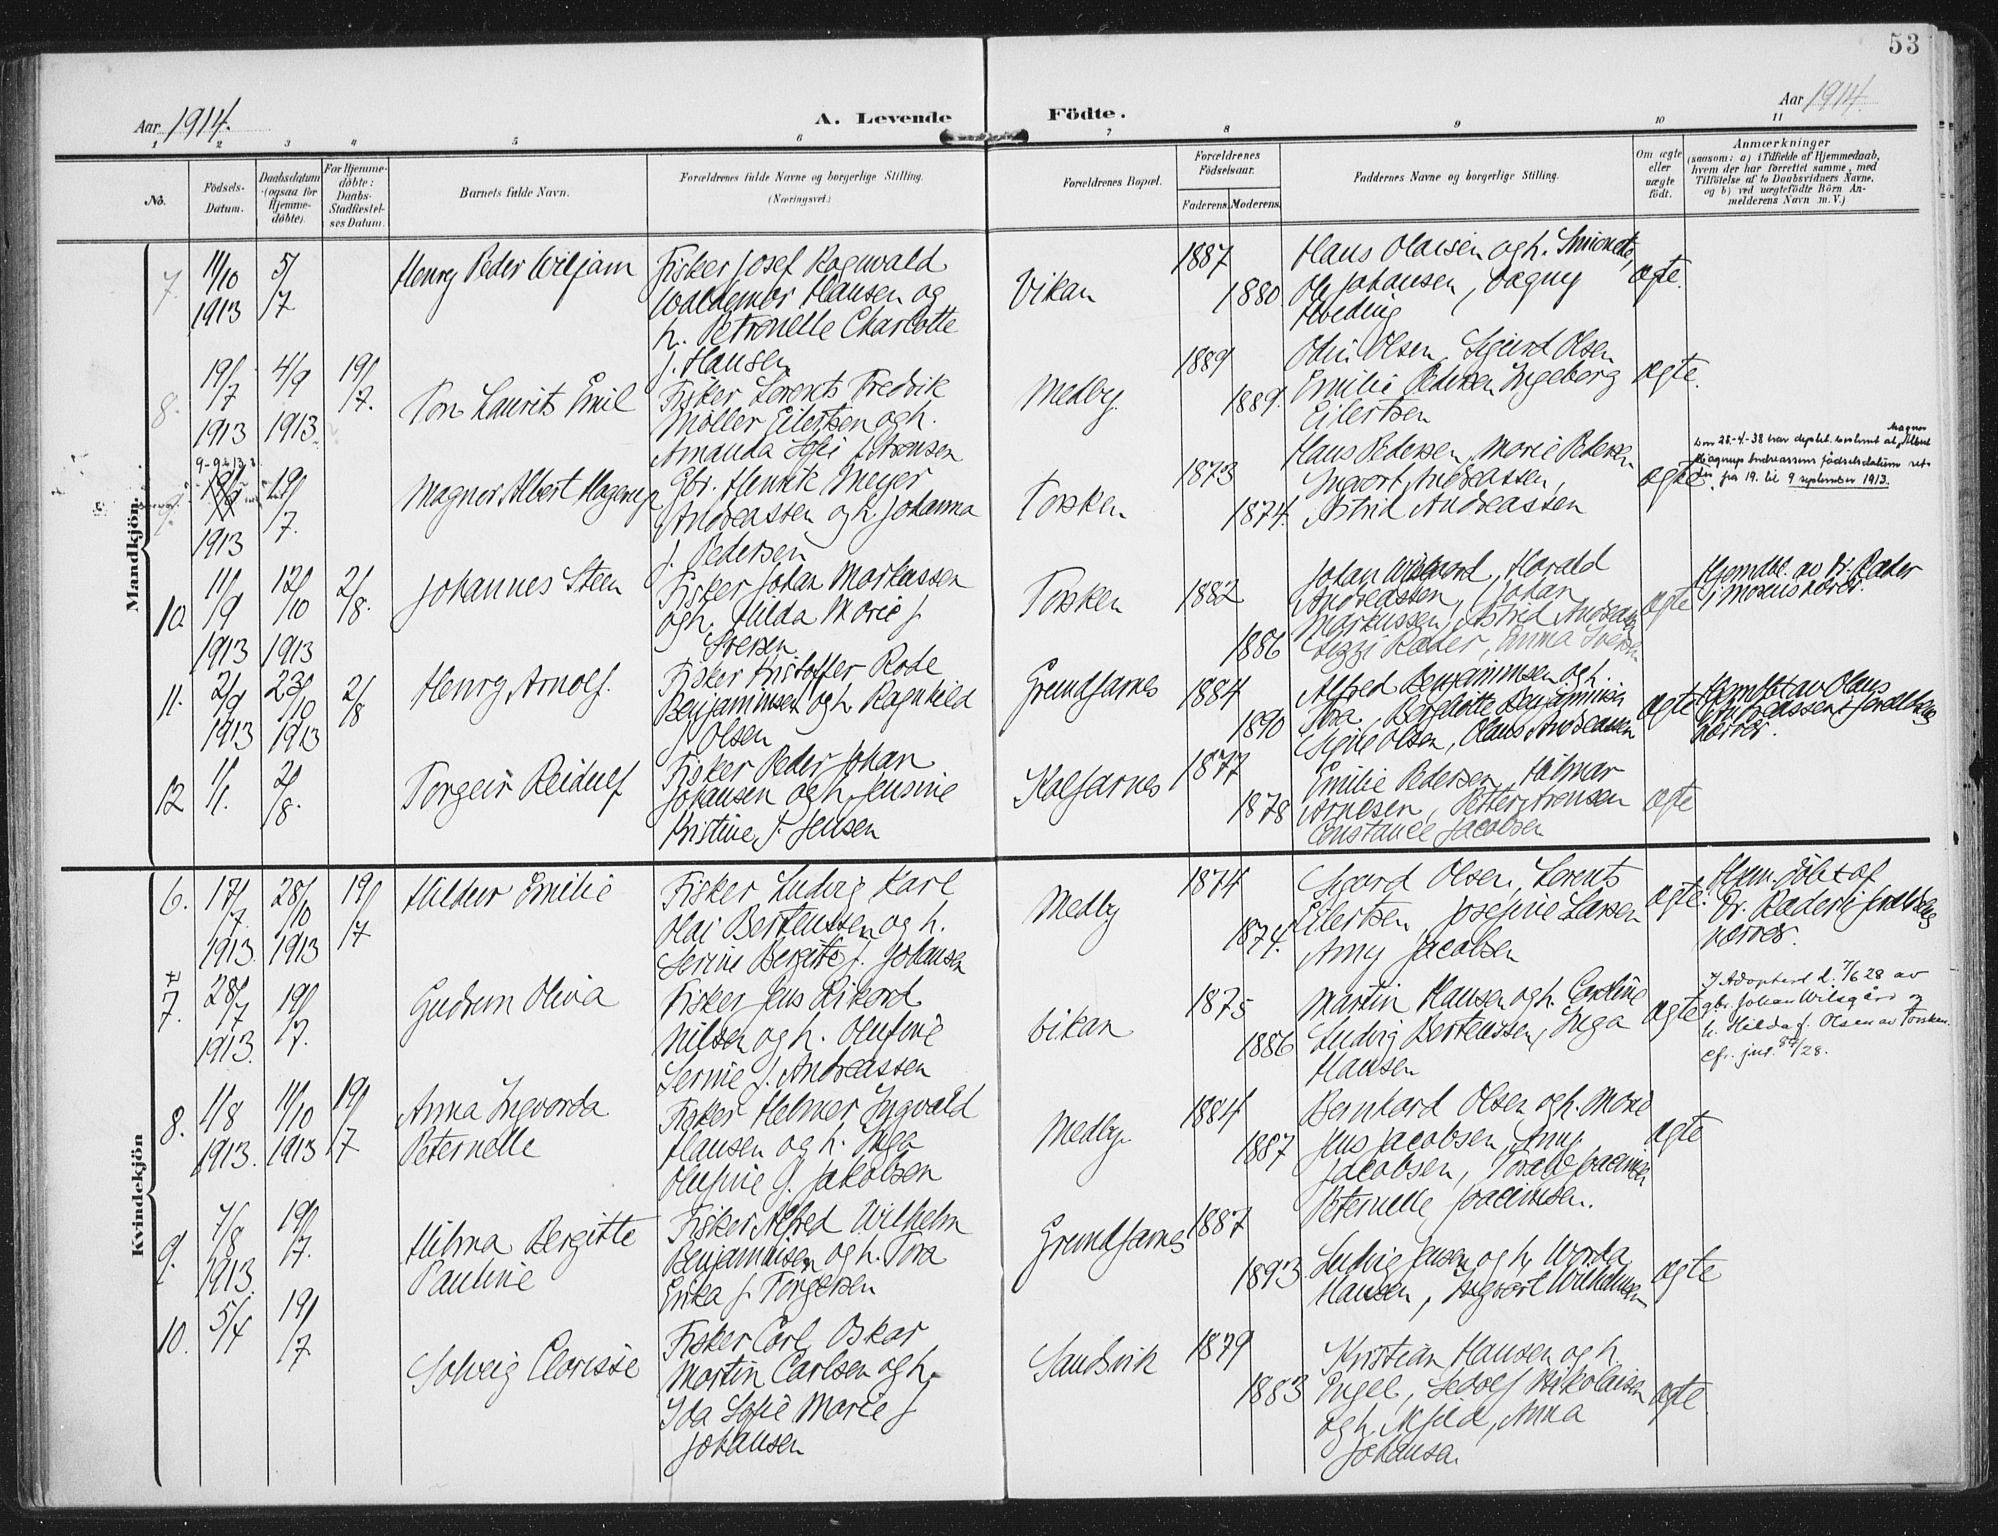 53
Aar 1914.
A. Levende Födte.
Aar 1914.
1 2 3 4 5 6 7 8 9 10 11
No.
Födsels-
Datum.
Daabsdatum
(ogsaa for
Hjemme-
döbte).
For Hjemme-
döbte:
Daabs-
Stadfæstel-
ses Datum.
Barnets fulde Navn.
Forældrenes fulde Navne og borgerlige Stilling.
(Næringsvei.)
Forældrenes Bopæl.
Forældrenes
Födselsaar.
Faderens. Moderens.
Faddernes Navne og borgerlige Stilling.
Om ægte
eller
uægte
födt.
Anmærkninger
(saasom: a) i Tilfælde af Hjemmedaab,
hvem der har forrettet samme, med
Tilföielse af to Daabsvidners Navne.
og b) ved uægtefödte Börn An-
melderens Navn m. V.)
Mandkjön.
7.
11/10
1913
5/7
Henry Peder Wiljam
Fisker Josef Ragnvald
Waldemar Hansen og
h. Petronelle Charlotte
f. Hansen
Vikan
1887
1880
Hans Olaisen og h.
Ole Johansen, Dagny
Hveding
ægte.
8.
19/7
1913
4/9
1913
19/7.
Tor Laurits Emil
Fisker Lorents Fredrik
Møller Eilertsen og h.
Amanda Sofie
Medby.
1889
1889.
Odin Olsen, Sigurd Olsen
Emilie Pedersen Ingeborg
Eilertsen
ægte.
9-9-13
1913
19/7.
Magnor Albert Hagerup
Gbr. Henrik Meyer
Andreassen og h. Johanna
f. Pedersen
Torsken
1873
1874.
Hans Pedersen, Marie Pedersen
Ingvort Andreassen,
Astrid Andreassen
ægte
Magnor
Den 28.-4.-38 har deptet. bestemt at Albert
Hagerup Andreassens fødselsdatum ret-
tes fra 19. til 9 september 1913.
10.
11/9
1913
12/10
1913
2/8.
Johannes Steen
Fisker Johan Markussen
og h. Hilda Marie f.
Iversen
Torsken
1882
1886
Johan Harald
Andreassen, Johan
Markussen, Astrid
Lizzi Ræder, Anna
ægte
Hjemdbt. av Dr. Ræder
i morens nærv.
11.
2/9
1913
23/10
1913
2/8
Henry Arnolf.
Fisker Kristoffer Rode
Benjaminsen og h. Ragnhild
f. Olsen
Grundfarnes
1884
1890
Alfred Benjaminsen og h.
Tora, Bergliotte Benjaminsen
Signe Olsen, Olaus Andreassen
ægte
Hjemdbt av Olaus
Andreassen i foreldrenes
nærver.
12
1/1.
2/8.
Torgeir Reidulf
Fisker Peder Johan
Johansen og h. Jensine
Kristine f. Jensen
Kalfarnes
1877
1878
Emilie Pedersen, Hilmar
Arnesen, Petter Arensen
Constance Jacobsen
ægte
Kvindekjön
6.
17/7.
1913.
28/10
1913
19/7
Hildur Emilie
Fisker Ludvig Karl
Olai Bertenssen og h.
Serine Bergitte f. Johansen
Medby
1874
1874.
Sigurd Olsen, Lorents
Eilertsen, Josefine Larsen
Amy Jacobsen
ægte.
Hjem. døbt af
Dr. Ræder i foreldrenes
nærver.
7.
28/7
1913.
19/7.
Gudrun Oliva
Fisker Jens Rikard
Nilsen og h. Olufine
Serine f. Andreassen
Vikan
1875
1886
Martin Hansen og h. Caroline
Ludvig Bertenssen, Inga
Hansen
ægte
Adoptert d. 7/6 28 av
gbr. Johan Wilsgård og
h. Hilda f. Olsen av Torsken.
Cfr. jnr. 87/28.
8.
1/8
1913.
11/10
1913
19/7
Anna Ingvorda
Peternelle
Fisker Helmer Ingvald
Hansen og h. Inga
Olufine f. Jakobsen
Medby.
1884
1887
Bernhard Olsen og h. Marie
Jens Jacobsen, Amy
Jacobsen,
Peternelle Joacimsen.
ægte
9.
7/8
1913.
19/7.
Hilma Bergitte
Pauline
Fisker Alfred Wilhelm
Benjaminsen og h. Tora
Erika f. Torgersen
Grundfarnes
1887
1893.
Ludvig Jensen og h. Worda
Hansen, Ingvart Wilhelmsen
ægte
10.
5/4
19/7
Solveig Clarisse
Fisker Carl Oskar
Martin Carlsen og h.
Ida Sofie Marie f.
Johansen
Sandvik
1879
1883
Kristian Hansen og h
Ingel, Sedolf Nikolaisen
og h. Anna
Johansen.
ægte.